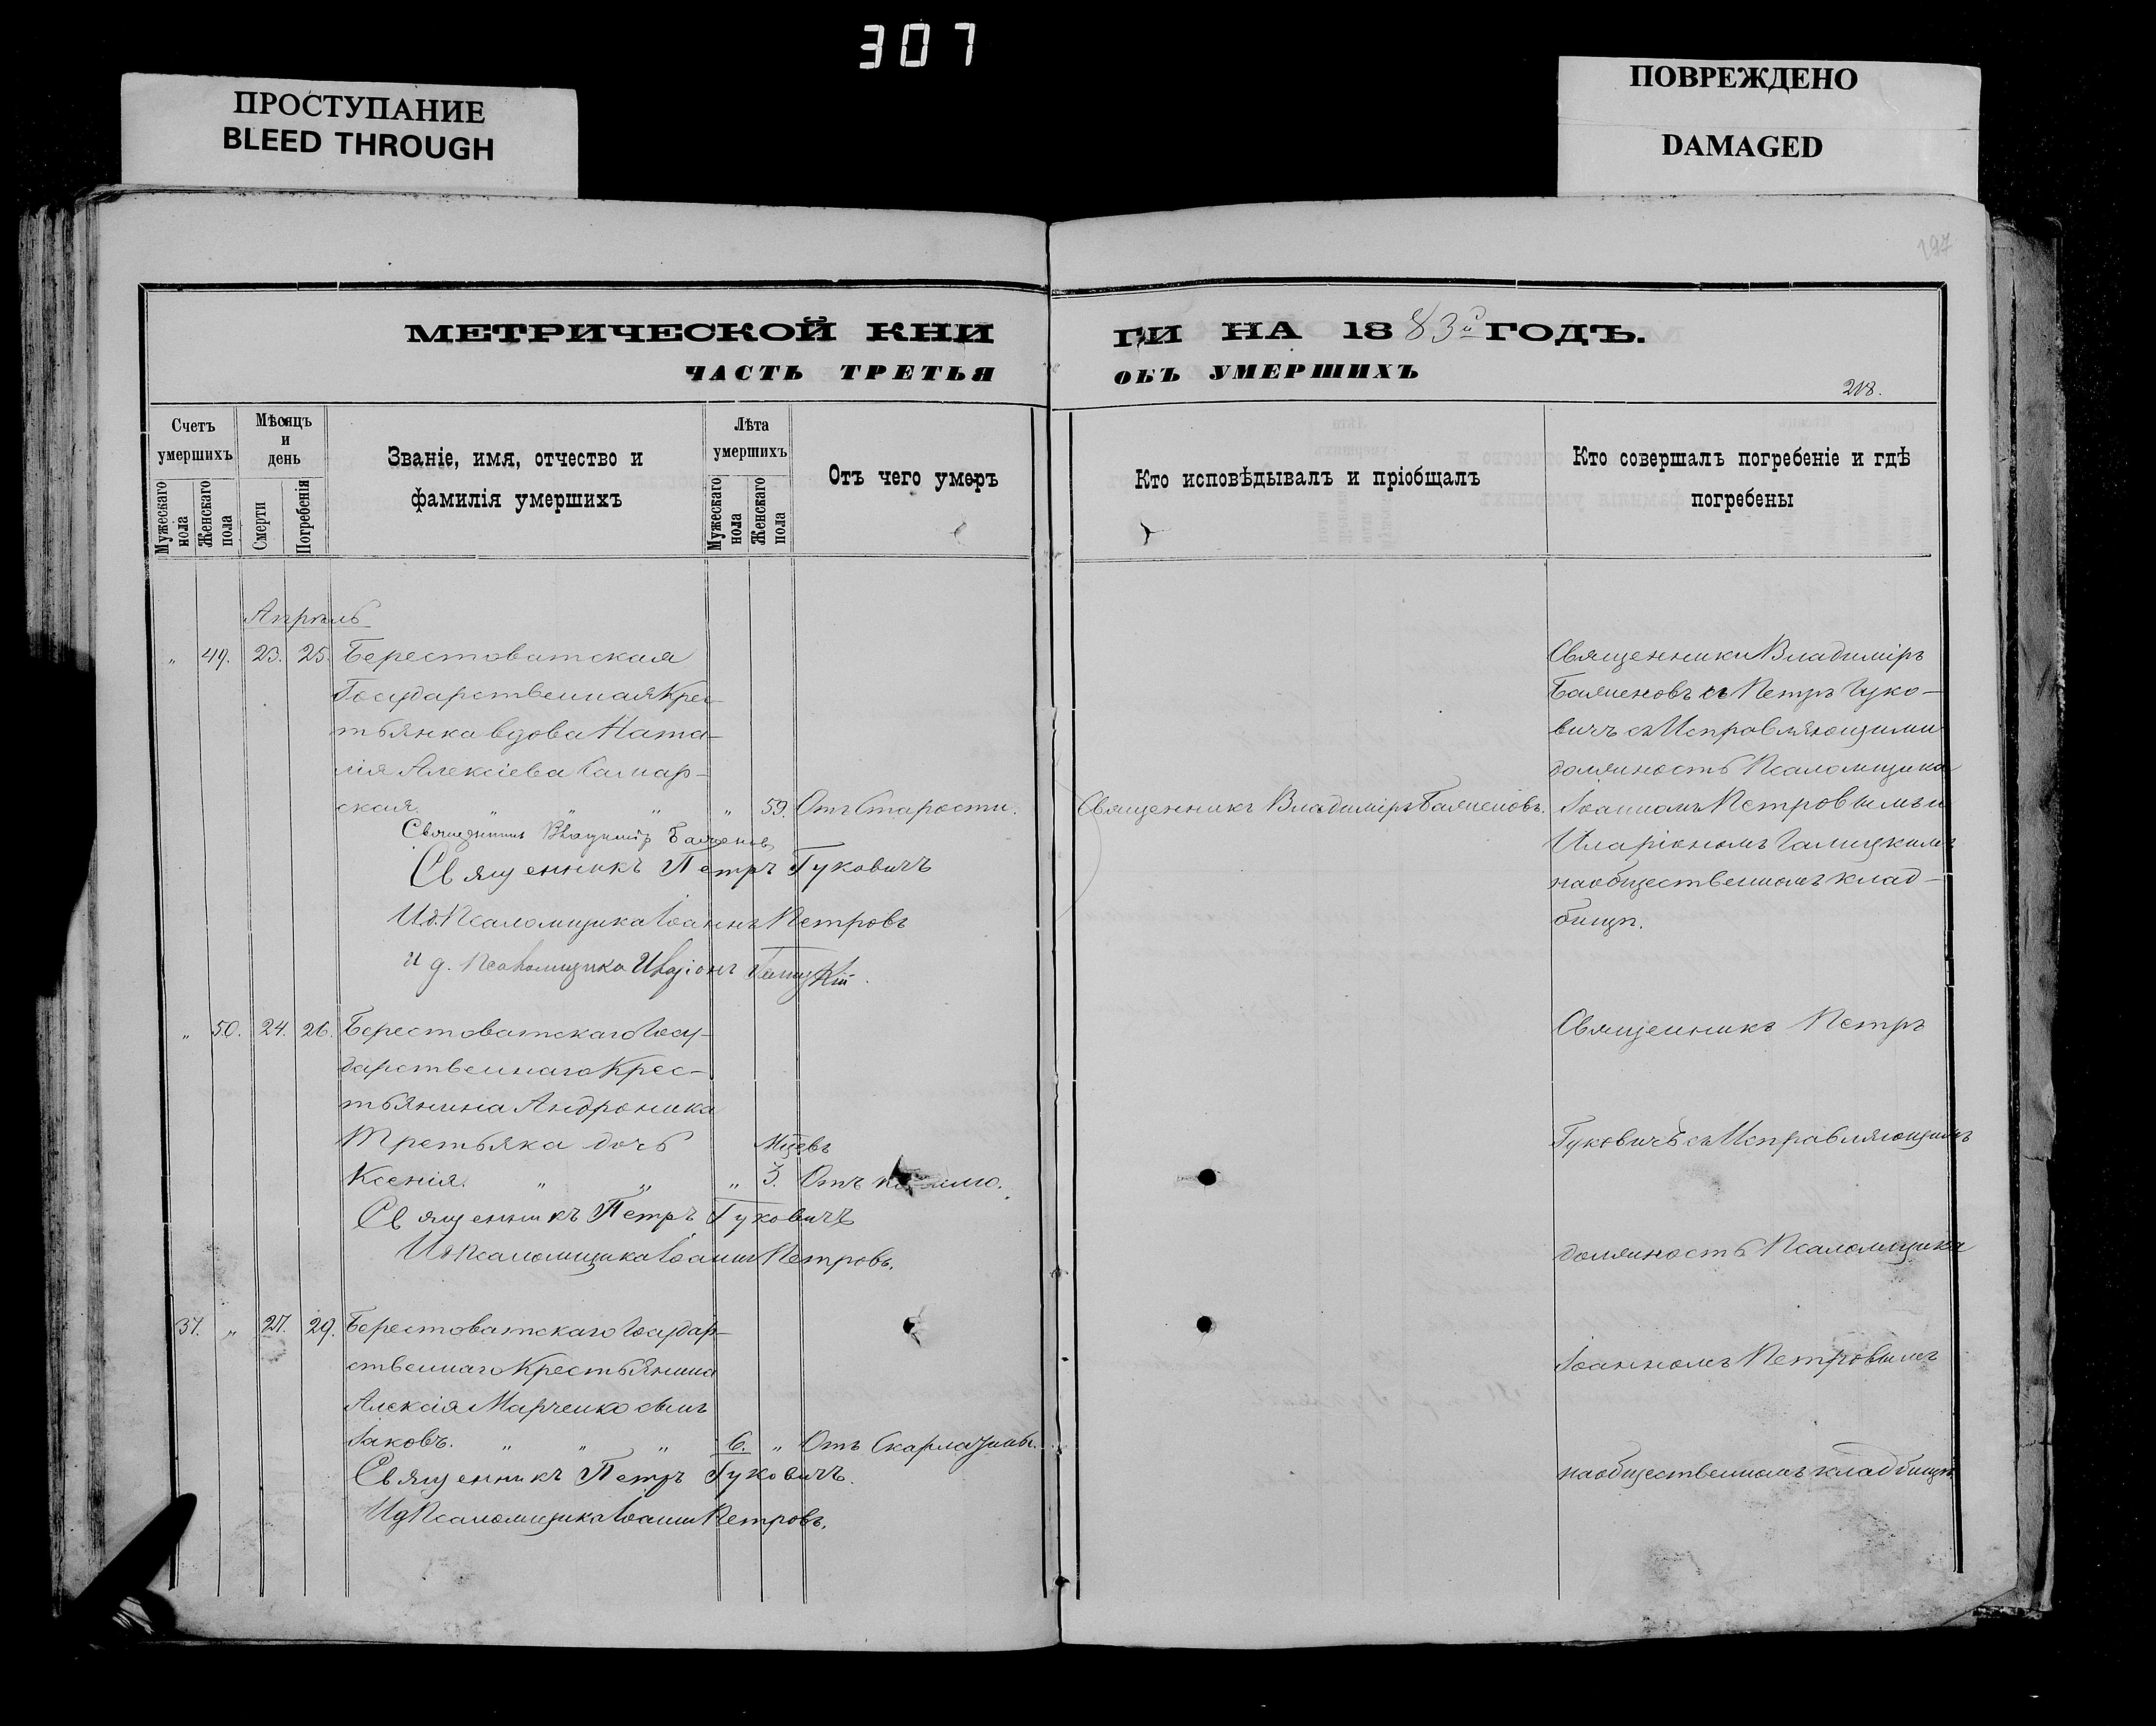 307
ПРОСТУПАНИЕ
BLEED THROUGH
ПОВРЕЖДЕНО
DAMAGED
197
МЕТРИЧЕСКОЙ КНИ
ГИ НА 1883й ГОДЪ.
ЧАСТЬ ТРЕТЬЯ
ОБЪ УМЕРШИХЪ
218.
Счетъ умершихъ
Мужескаго пола
Женскаго пола
Мѣсяцъ и день
Смерти
Погребенія
Званіе, имя, отчество и
фамилія умершихъ
Лѣта умершихъ
Мужескаго пола
Женскаго пола
Отъ чего умеръ
Кто исповѣдывалъ и пріобщалъ
Кто совершалъ погребеніе и гдѣ
погребены
Апрѣль
„ 49. 23. 25. Берестоватская
Государственная Крес-
тьянка вдова Ната-
лія Алексіева
ская. „ „ „ „ 59. Отъ Старости.
Священникъ Владиміръ
Священникъ Петръ Гуковичъ
И.д. Псаломщика Іоаннъ Петровъ
И д. Псаломщика Иларіонъ Галицкій.
Священникъ Владиміръ
Священники Владиміръ
и Петръ Гуко-
вичъ съ Исправляющими
должность Псаломщика
Іоанномъ Петровымъ и
Иларіономъ Галицкимъ
на общественномъ клад-
бищѣ.
„ 50. 24. 26. Берестоватскаго Госу-
дарственнаго Крес-
тьянина Андроника
Третьяка дочь
Мцевъ
Ксенія. „ „ „ 3. Отъ
Священникъ Петръ Гуковичъ
Ид Псаломщика Іоаннъ Петровъ.
Священникъ Петръ
Гуковичъ съ Исправляющимъ
должность Псаломщика
Іоанномъ Петровымъ
на общественномъ кладбищѣ
37. „ 27. 29. Берестоватскаго Государ-
ственнаго Крестьянина
Алексія Марченко сынъ
Іаковъ. „ „ „ 6. „ Отъ Скарлатины.
Священникъ Петръ Гуковичъ.
Ид Псаломщика Іоаннъ Петровъ.